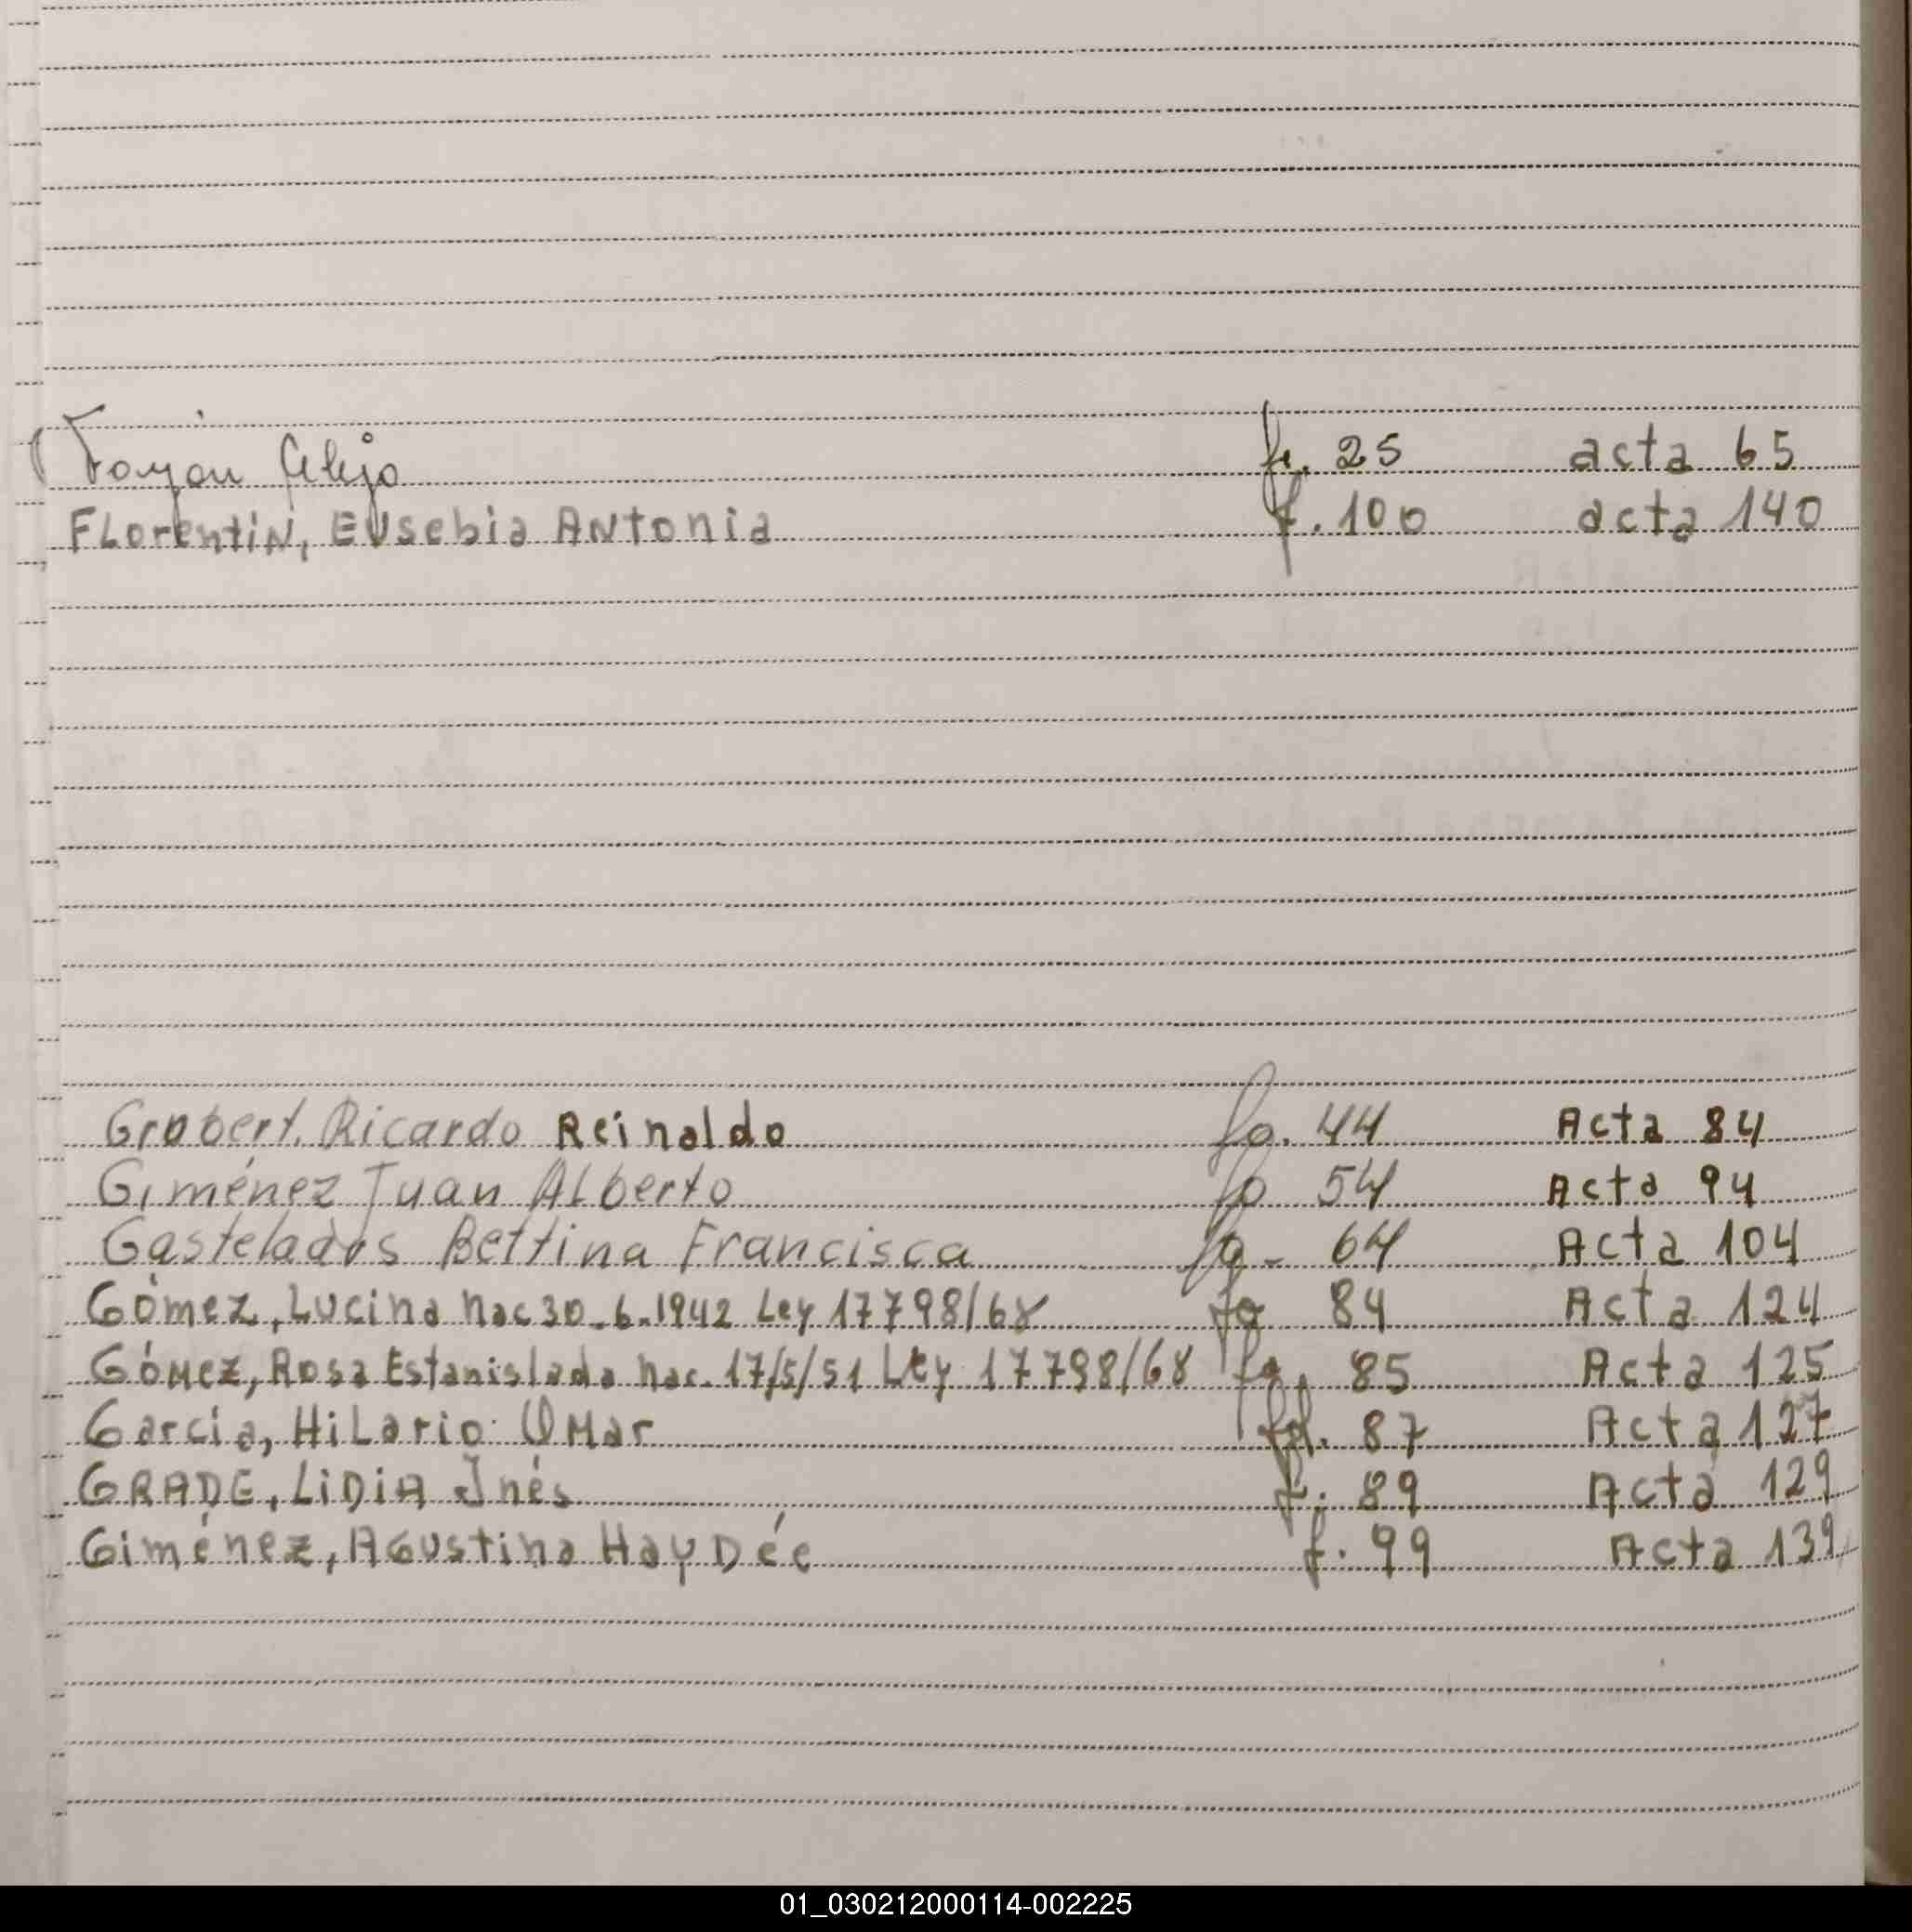 Fayon Alejo fo. 25 acta 65
FLorentiN, EUsebia ANtonia f. 100 acta 140
Grobert. Ricardo Reinaldo fo. 44 Acta 84
Giménez Juan ALberto fo 54 Acta 94
Gastelados Bettina Francisca fo - 64 Acta 104
Gómez, Lucina nac 30-6-1942 Ley 17798/68 fo 84 Acta 124
GóMez, Rosa Estanislada nac. 17/5/51 Ley 17798/68 fo 85 Acta 125
García, HiLario OMar fol. 87 Acta 127
GRADE, LiDiA Inés f. 89 Acta 129
Giménez, AGustina HayDée f. 99 Acta 139
01_030212000114-002225